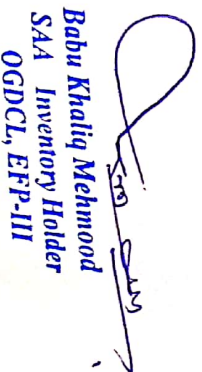 Babu Khaliq Mehmood
SAA Inventory Holder
OGDCL, EFP-III